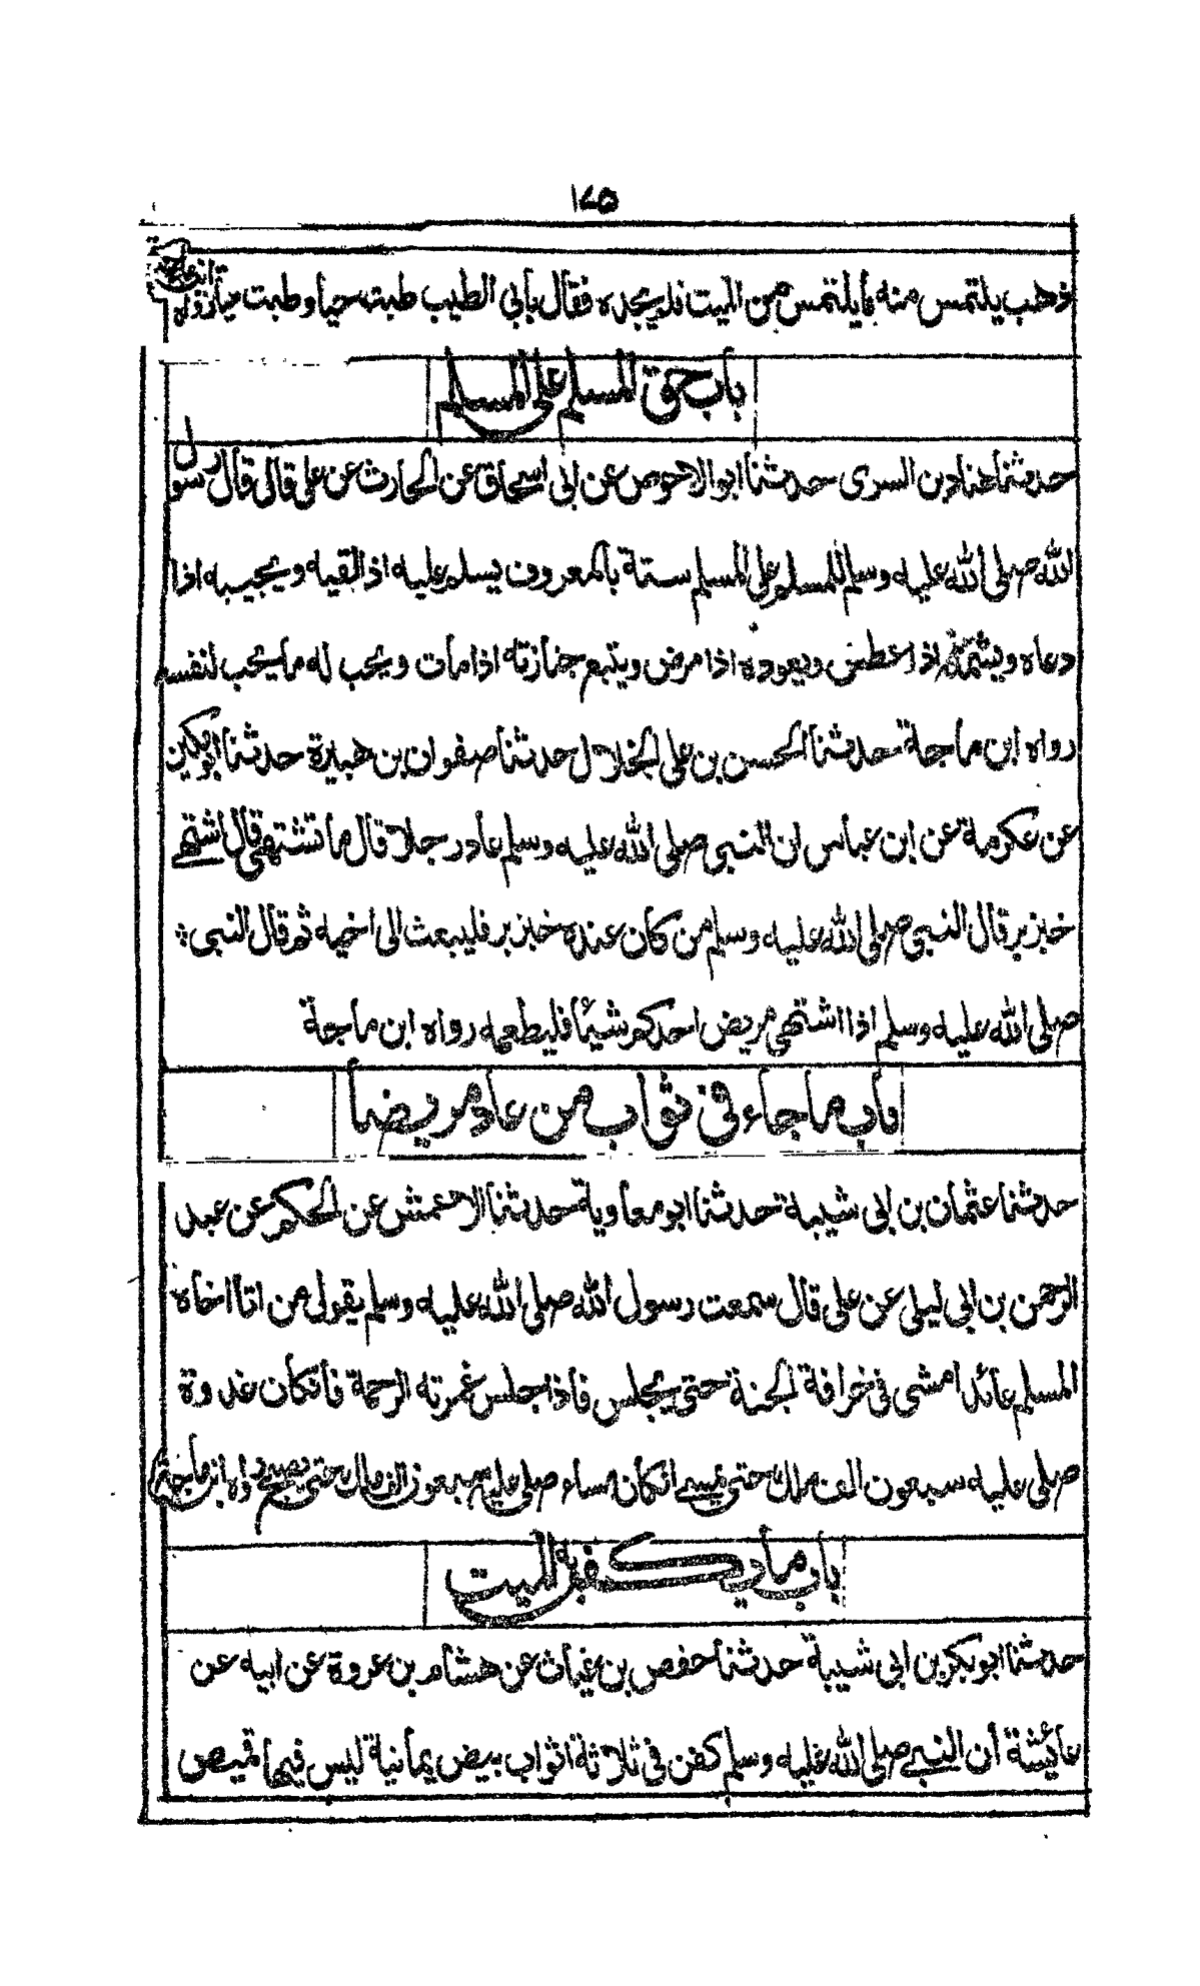 ١٤٥
ذهب يلتمس منه ما يلتمس من الميت فلم يجده فقال بابي الطيب طبت حيا وطبت ميتا رواه ابن ماجة
باب حق المسلم على المسلم
حدثنا هناد بن السرى حدثنا ابو الاحوص عن ابى اسحاق عن الحارث عن على قال قال رسول
الله صلى الله عليه وسلم للمسلم على المسلم ستة بالمعروف يسلم عليه اذا لقيه ويجيبه اذا
دعاه ويشمته اذا عطس ويعوده اذا مرض ويتبع جنازته اذا مات ويحب له ما يحب لنفسه
رواه ابن ماجة حدثنا الحسن بن على الخلال حدثنا صفوان بن هبيرة حدثنا ابو مكين
عن عكرمة عن ابن عباس ان النبى صلى الله عليه وسلم عاد رجلا قال ما تشتهى قال اشتهى
خبز بر قال النبى صلى الله عليه وسلم من كان عنده خبز بر فليبعث الى اخيه ثم قال النبى
صلى الله عليه وسلم اذا اشتهى مريض احدكم شيئا فليطعمه رواه ابن ماجة
باب ما جاء فى ثواب من عاد مريضا
حدثنا عثمان بن ابى شيبة حدثنا ابو معاوية حدثنا الاعمش عن الحكم عن عبد
الرحمن بن ابى ليلى عن على قال سمعت رسول الله صلى الله عليه وسلم يقول من اتا اخاه
المسلم عائدا مشى فى خرافة الجنة حتى يجلس فاذا جلس غمرته الرحمة فان كان غدوة
صلى عليه سبعون الف ملك حتى يمسى ان كان مساء صلى عليه سبعون الف ملك حتى يصبح رواه ابن ماجة
باب ما ديك فيه الميت
حدثنا ابو بكر بن ابى شيبة حدثنا حفص بن غياث عن هشام بن عروة عن ابيه عن
عائشة أن النبى صلى الله عليه وسلم كفن فى ثلاثة اثواب بيض يمانية ليس فيها قميص